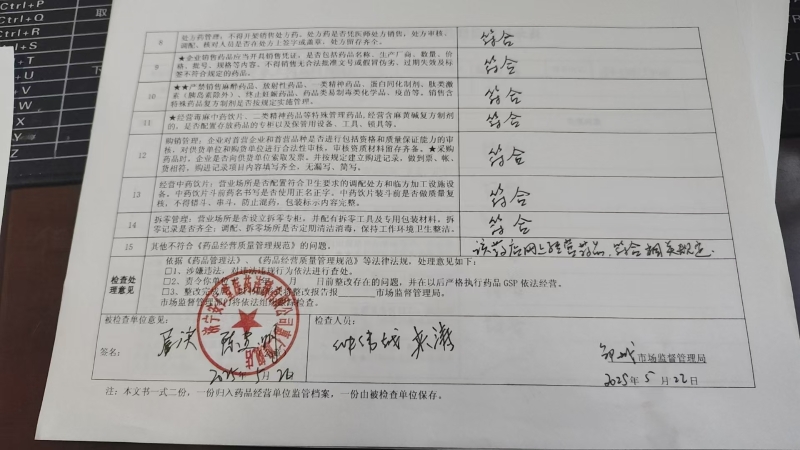 8
处方药管理：不得开架销售处方药、处方药是否凭医师处方销售，处方审核、
调配、核对人员是否在处方上签字或盖章，处方留存齐全。
符合
9
★企业销售药品应当开具销售凭证，是否包括药品名称、生产厂商、数量、价
格、批号、规格等内容。不得销售无合法批准文号或假冒伪劣、过期失效及标
签不符合规定的药品。
符合
10
★★严禁销售麻醉药品、放射性药品、一类精神药品、蛋白同化制剂、肽类激
素（胰岛素除外）、终止妊娠药品、药品类易制毒类化学品、疫苗等。销售含
特殊药品复方制剂是否按规定实施管理。
符合
11
★经营毒麻中药饮片、二类精神药品等特殊管理药品，经营含麻黄碱复方制剂
的，是否配置存放药品的专柜以及保管用设备、工具、锁具等。
符合
12
购销管理：企业对首营企业和首营品种是否进行包括资格和质量保证能力的审
核，对供货单位和购货单位进行合法性审核，审核资质材料留存齐备。★采购
药品时，企业是否向供货单位索取发票，并按规定建立购进记录，做到票、帐、
货相符，购进记录项目内容填写齐全、无漏写、简写。
符合
13
经营中药饮片：营业场所是否配置符合卫生要求的调配处方和临方加工设施设
备。中药饮片斗前药名书写是否使用正名正字，中药饮片装斗前是否做质量复
核，不得错斗、串斗，防止混药，包装标示内容完整。
符合
14
拆零管理：营业场所是否设立拆零专柜，并配有拆零工具及专用包装材料，拆
零记录是否齐全；调配、拆零场所是否定期清洁消毒，保持工作环境卫生整洁。
符合
15
其他不符合《药品经营质量管理规范》的问题。
该药店网上经营药品，符合相关规定.
检查处
理意见
依据《药品管理法》、《药品经营质量管理规范》等法律法规，处理意见如下：
□1、涉嫌违法，对违法违规行为依法进行查处。
□2、责令你单位 月 日前整改存在的问题，并在以后严格执行药品 GSP 依法经营。
□3、整改完成 整改报告报 市场监督管理局。
市场监督管理部门将依法组织 检查。
被检查单位意见：
检查人员：
签名：
2025年5月22
市场监督管理局
2025年 5 月 22日
注：本文书一式二份，一份归入药品经营单位监管档案，一份由被检查单位保存。